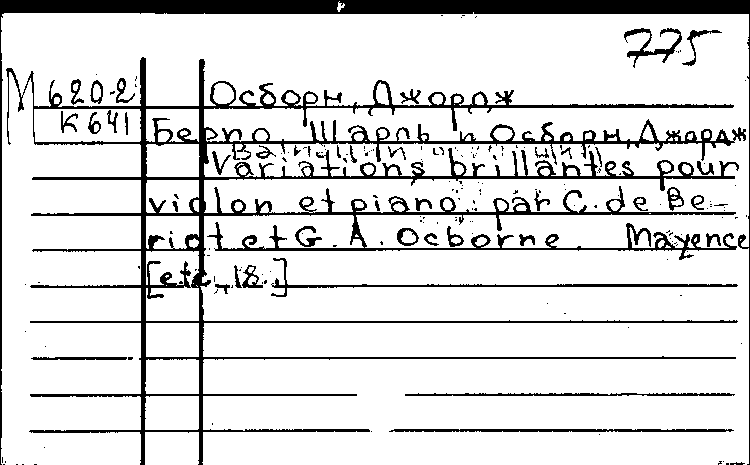 775
М 620-2 Осборн, Джордж
К 641 Берио, Шарль и Осборн, Джордж
Variations brillantes pour
violon et piano par C. de Be-
riot et G. A. Osborne. Mayence
[etc., 18..]